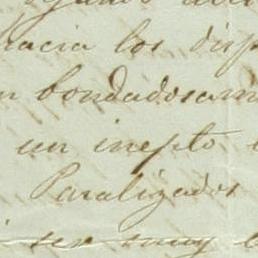 racia los disp
n bondadosam
un inepto
Paralizados
ser muy